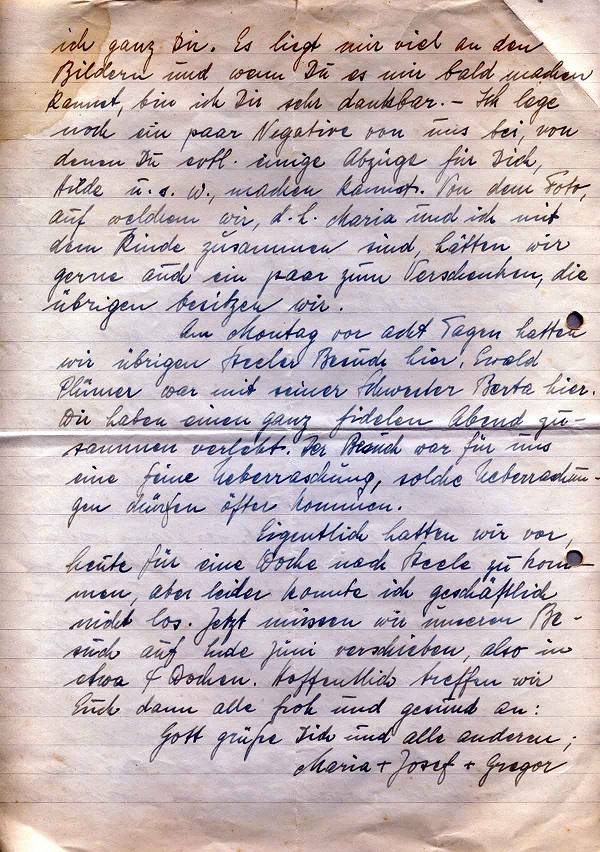 ich ganz Dir. Es liegt mir viel an den
Bildern und wenn Du es mir bald machen
kannst, bin ich Dir sehr dankbar. – Ich lege
noch ein paar Negative von uns bei, von
denen Du evtl. einige Abzüge für Dich,
Hilde u.s.w., machen kannst. Von dem Foto,
auf welchem wir, d.h. Maria und ich mit
dem Kinde zusammen sind, hätten wir
gerne auch ein paar zum Verschenken, die
übrigen besitzen wir.
Am Montag vor acht Tagen hatten
wir übrigen Steeler Besuch hier. Ewald
Plümer war mit seiner Schwester Berta hier.
Wir haben einen ganz fidelen Abend zu-
sammen verlebt. Der Besuch war für uns
eine feine Ueberraschung, solche Ueberraschun-
gen dürfen öfter kommen.
Eigentlich hatten wir vor,
heute für eine Woche nach Steele zu kom-
men, aber leider konnte ich geschäftlich
nicht los. Jetzt müssen wir unseren Be-
such auf Ende Juni verschieben, also in
etwa 4 Wochen. Hoffentlich treffen wir
Euch dann alle froh und gesund an:
Gott grüße Dich und alle anderen;
Maria + Josef + Gregor